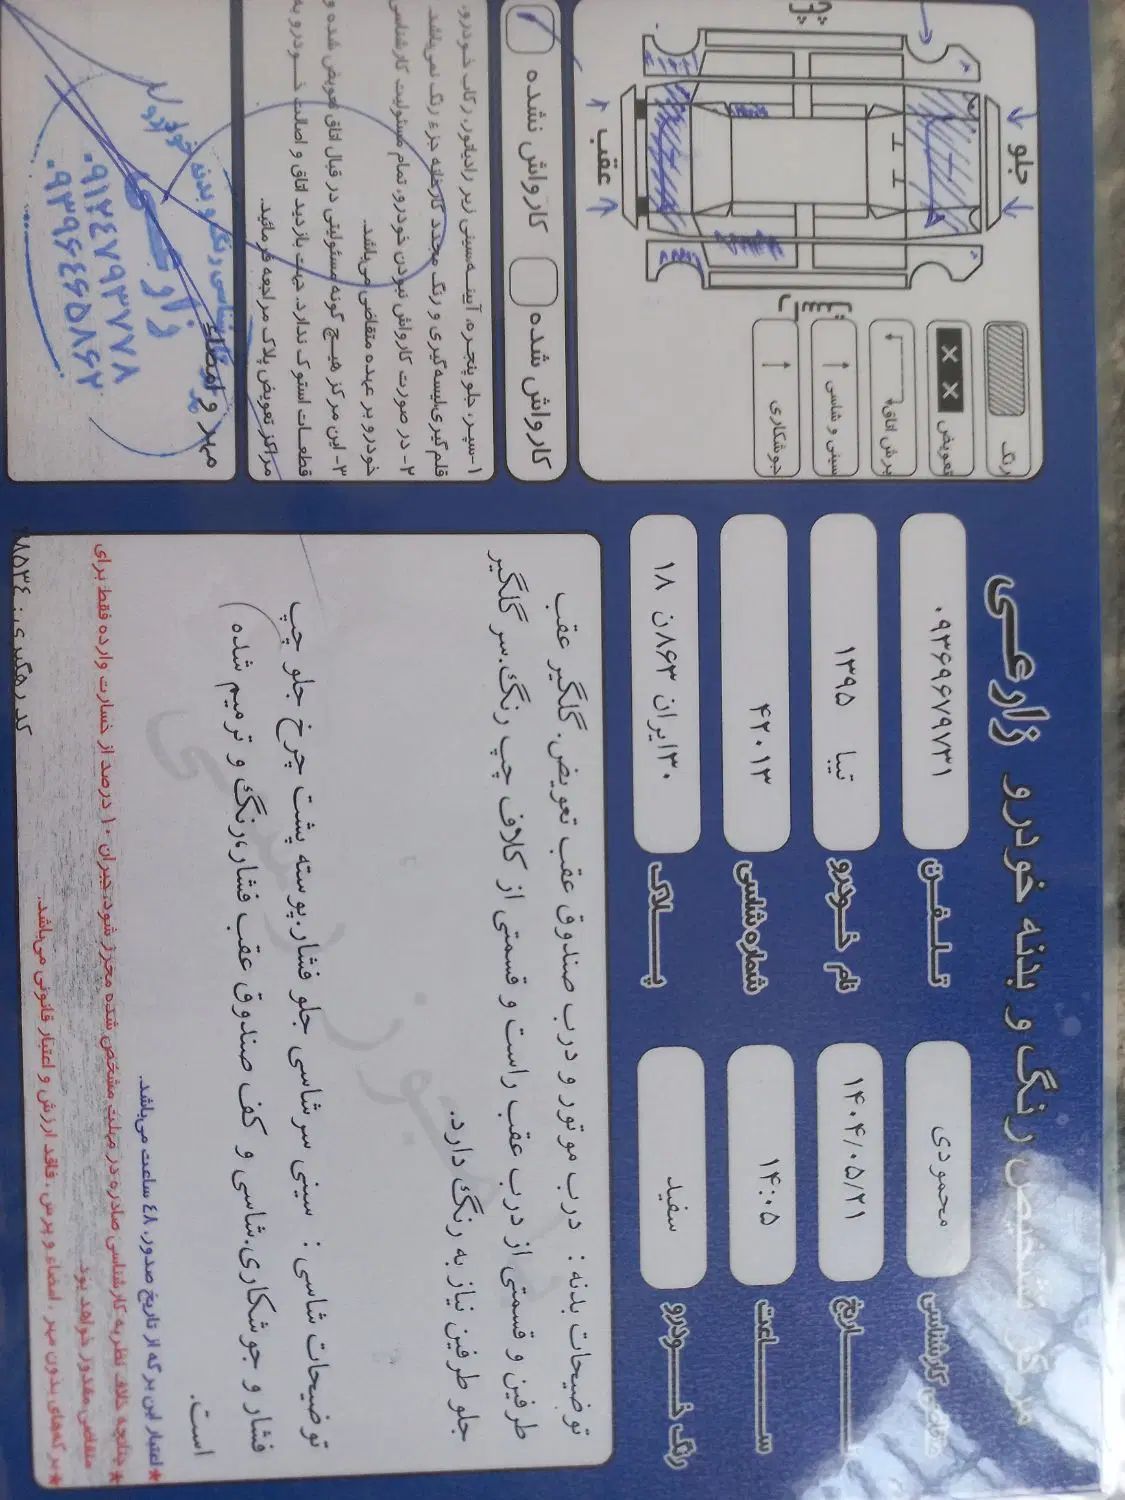 مرکز تشخیص رنگ و بدنه خودرو زارعی
متقاضی کارشناسی محمودی تلفن ۰۹۳۶۹۶۷۹۷۳۱
تاریخ ۱۴۰۴/۰۵/۲۱ نام خودرو تیبا ۱۳۹۵
ساعت ۱۴:۰۵ شماره شاسی ۴۲۰۱۳
رنگ خودرو سفید پلاک ۳۰ایران ۸۶۳ن ۱۸
توضیحات بدنه : درب موتور و درب صندوق عقب تعویض.گلگیر عقب
طرفین و قسمتی از درب عقب راست و قسمتی از کلاف چپ رنگ.سر گلگیر
جلو طرفین نیاز به رنگ دارد.
توضیحات شاسی : سینی سرشاسی جلو فشار.پوسته پشت چرخ جلو چپ
فشار و جوشکاری.شاسی و کف صندوق عقب فشار،رنگ و ترمیم شده
است.
★اعتبار این برگه از تاریخ صدور، ٤٨ ساعت می‌باشد.
★چنانچه خلاف نظریه کارشناسی صادره در مهلت مشخص شده محرز شود، جبران ۱۰ درصد از خسارت وارده فقط برای
متقاضی مقدور خواهد بود.
★برگه‌های بدون مهر ، امضاء و پرس ، فاقد ارزش و اعتبار قانونی می‌باشد.
کد رهگیری:
جلو
عقب
رنگ
تعویض
برش اتاق
سینی و شاسی
جوشکاری
کارواش شده
کارواش نشده
۱-سپر، جلو پنجره، آیینه،سینی زیر رادیاتور، رکاب خودرو،
قلم گیری،لیسه‌گیری و رنگ مجدد کارخانه جزء رنگ نمی‌باشد.
۲- در صورت کارواش نبودن خودرو، تمام مسئولیت کارشناسی
خودرو بر عهده متقاضی می‌باشد.
۳- این مرکز هیچ گونه مسئولیتی در قبال اتاق تعویض شده و
قطعات استوک ندارد. جهت بازدید اتاق و اصالت خودرو به
مراکز تعویض پلاک مراجعه فرمائید.
مهر و امضاء
زارعی
۰۹۱۲٤۷۹۳۷۷۸
۰۹۳۹٦٤٦۵۸٦۲